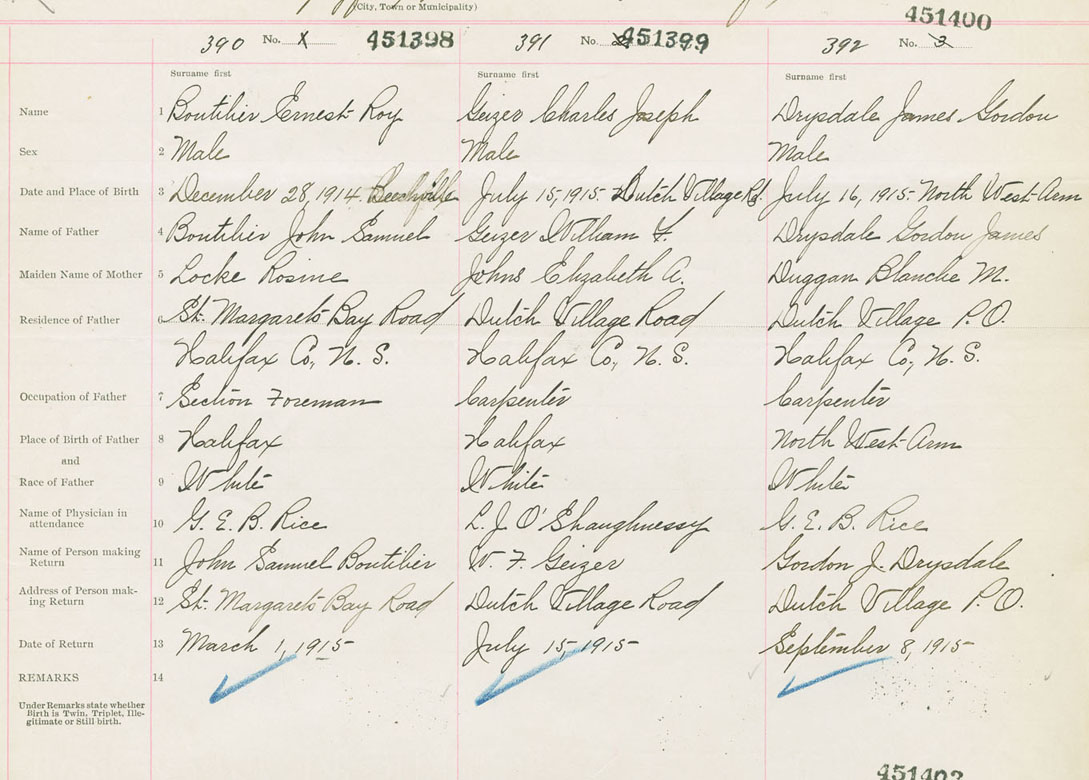 (City, Town or Municipality)
451400
390 No. 1 451398 391 No. 451399 392 No. 3
Surname first Surname first Surname first
Name 1 Boutilier Ernest Roy Geizer Charles Joseph Drysdale James Gordon
Sex 2 Male Male Male
Date and Place of Birth 3 December 28, 1914. Beechville July 15, 1915- Dutch Village Rd. July 16, 1915- North West-Arm
Name of Father 4 Boutilier John Samuel Geizer William F. Drysdale Gordon James
Maiden Name of Mother 5 Locke Rosine Johns Elizabeth A. Duggan Blanche M.
Residence of Father 6 St. Margaret's Bay Road Dutch Village Road Dutch Village P.O.
Halifax Co, N. S. Halifax Co, N. S. Halifax Co, N. S.
Occupation of Father 7 Section Foreman Carpenter Carpenter
Place of Birth of Father 8 Halifax Halifax North West-Arm
and
Race of Father 9 White White White
Name of Physician in
attendance 10 G. E. B. Rice L. J. O'Shaughnessy G. E. B. Rice
Name of Person making
Return 11 John Samuel Boutilier W. F. Geizer Gordon J. Drysdale
Address of Person mak-
ing Return 12 St. Margaret's Bay Road Dutch Village Road Dutch Village P.O.
Date of Return 13 March 1, 1915- July 15, 1915- September 8, 1915-
REMARKS 14
Under Remarks state whether
Birth is Twin, Triplet, Ille-
gitimate or Still birth.